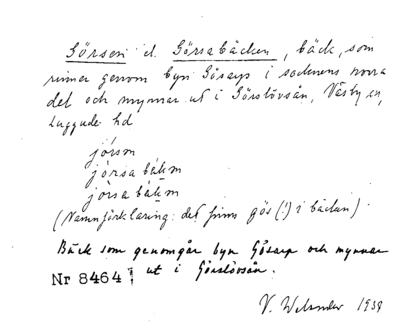 Görsen el. Görsabäcken, bäck, som
rinner genom byn Gösarp i socknens norra
del och mynnar ut i Görslövsån, Väsby sn,
Luggude hd
jó̀rsm
jó̀rsa bäḱm
jò̀rsa bäḱm
(Namnförklaring: det finns gös (!) i bäcken).
Bäck som genomgår byn Gösarp och mynnar
Nr 8464 ut i Görslövsån.
V. Welander 1939